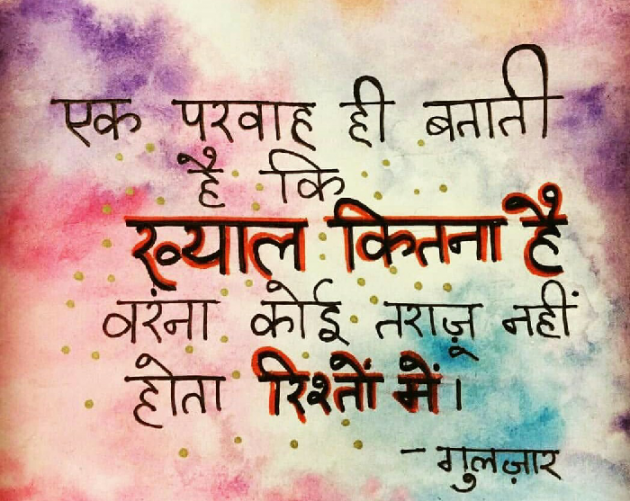 एक परवाह ही बताती
है कि
ख्याल कितना है
वरंना कोई तराज़ू नहीं
होता रिश्तों में।
- गुलज़ार